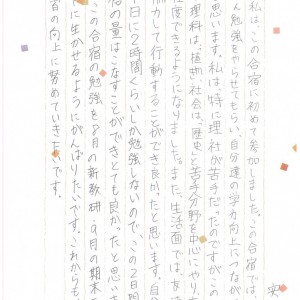 実
私は、この合宿に初めて参加しました。この合宿では
ん勉強をやらせてもらい、自分達の学力向上につなが
思います。私は、特に理社が苦手だったのですが、この
理科は、植物、社会は、歴史と苦手分野を中心にやり、
度できるようになりました。また、生活面では、友達
協力して行動することができて良かったと思います。自分
日に2時間くらいしか勉強しないので、この2日間
の量はこなすことができてとても良かったと思いま
この合宿の勉強を8月の新教研、9月の期末テ
に生かせるようにがんばりたいです。これからも、
習の向上に努めていきたいです。